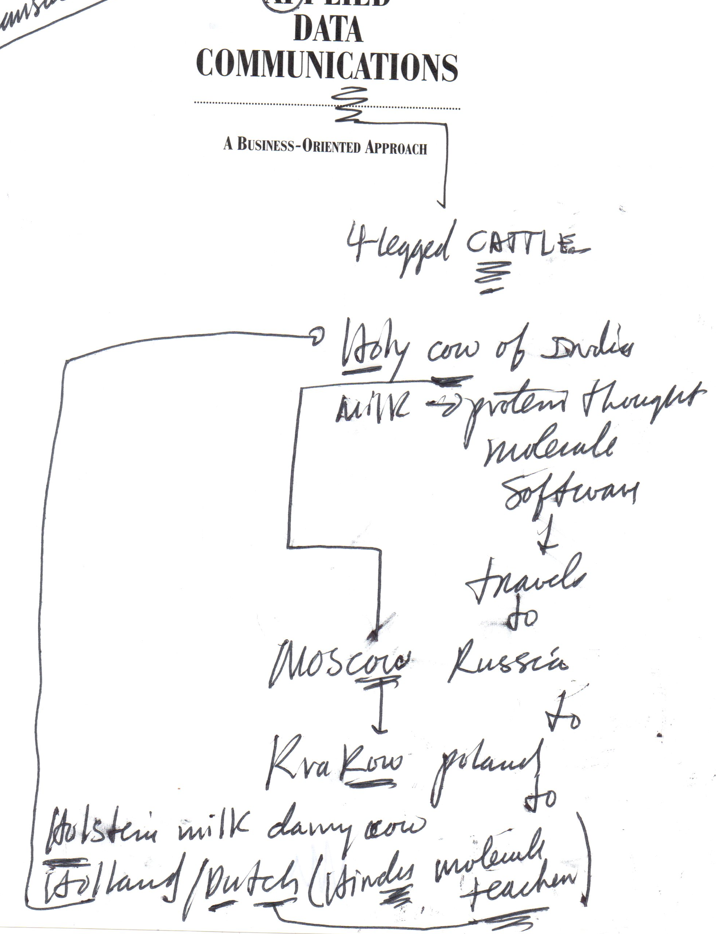 APPLIED
DATA
COMMUNICATIONS
A BUSINESS-ORIENTED APPROACH
4-legged CATTLE
Holy cow of India
Milk → protein thought
molecule
Software
travels
to
Moscow Russia
to
KraKow poland
to
Holstein milk dairy cow
Holland/Dutch (Hindu molecule
teacher)